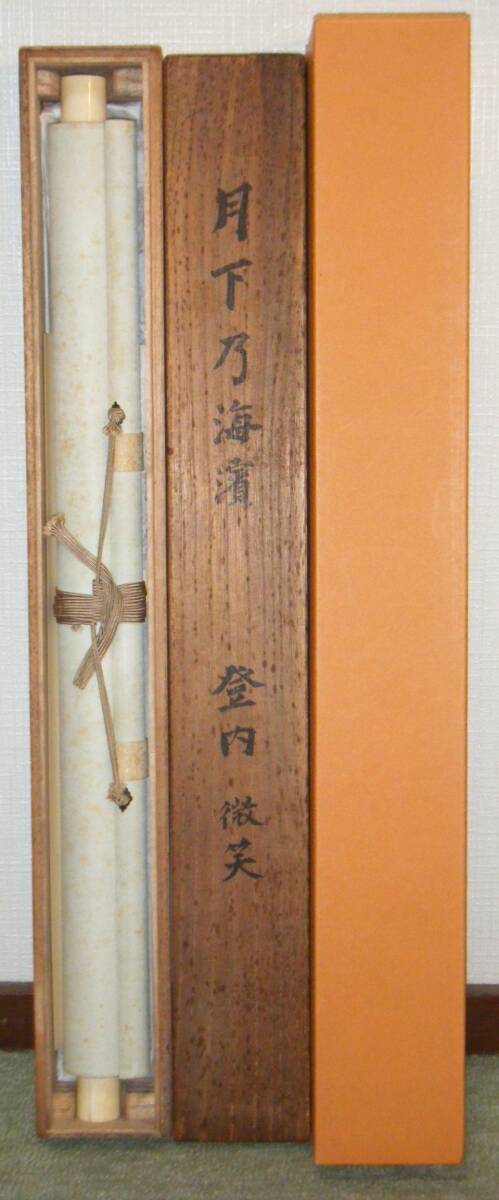 月下乃海濱
登内微笑